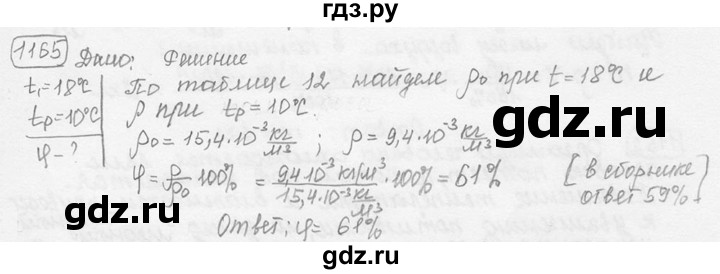 гдз.ру
1165 Дано: Решение
t₁=18°C По таблице 12 найдем ρ₀ при t=18°C и
tр=10°C ρ при tр=10°C.
φ-? ρ₀=15,4·10⁻³ кг/м³ ; ρ=9,4·10⁻³ кг/м³
φ=ρ/ρ₀·100% = 9,4·10⁻³ кг/м³ / 15,4·10⁻³ кг/м³ ·100%=61% [в сборнике
ответ 59%]
Ответ: φ=61%
гдз.ру